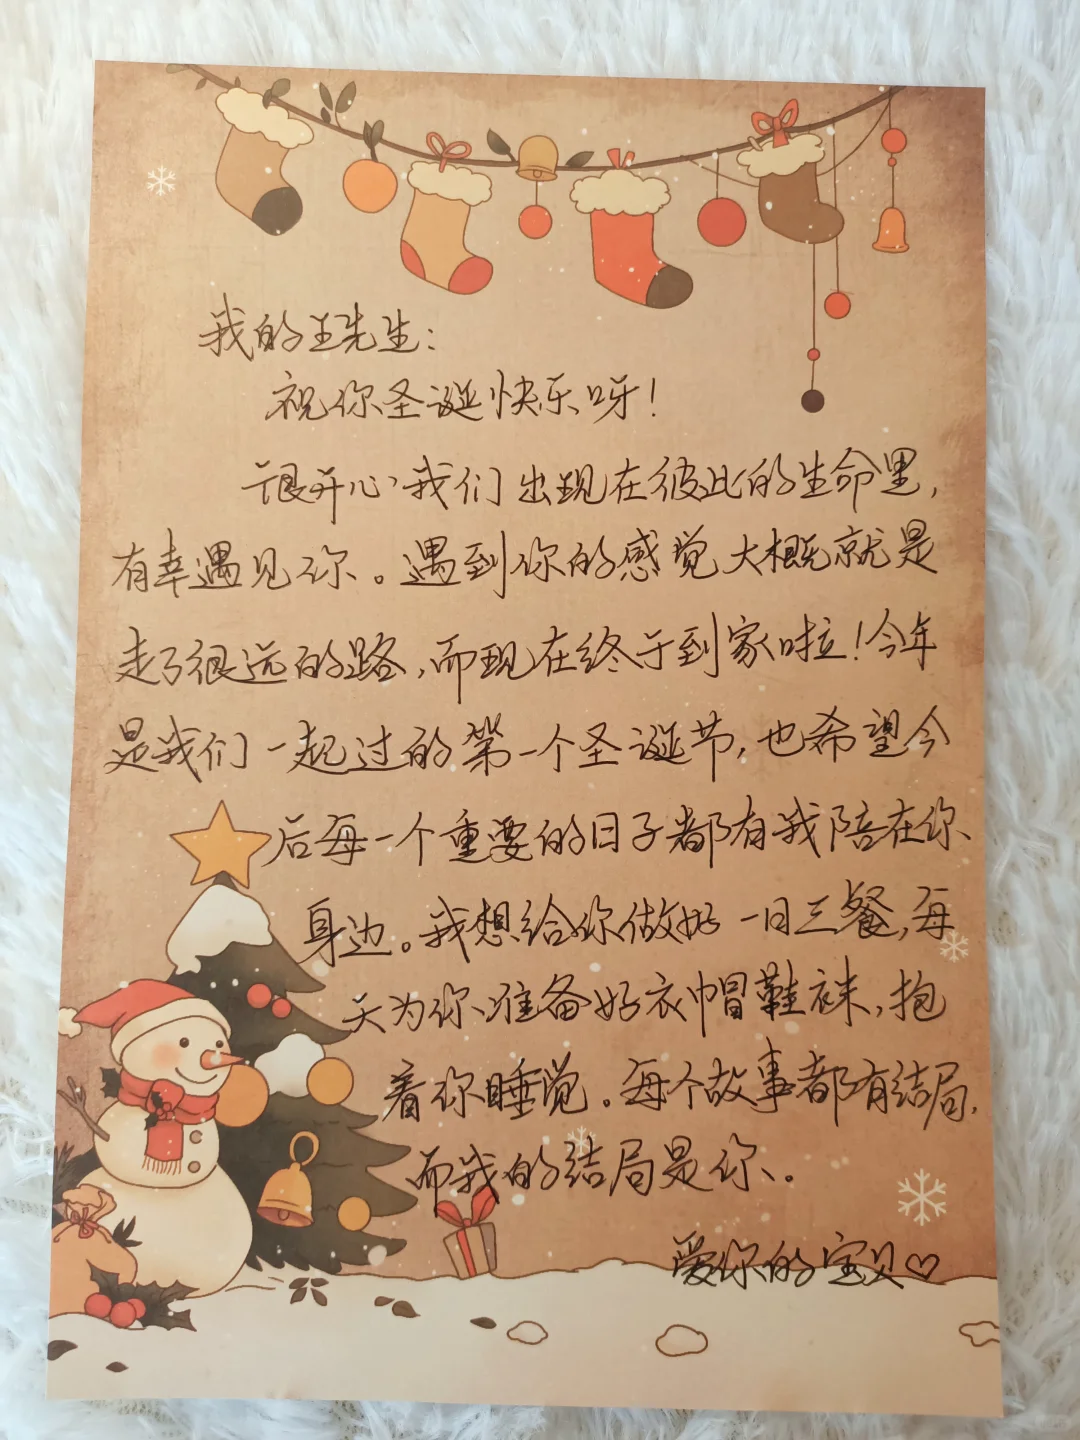 我的王先生：
祝你圣诞快乐呀！
很开心我们出现在彼此的生命里，
有幸遇见你。遇到你的感觉大概就是
走了很远的路，而现在终于到家啦！今年
是我们一起过的第一个圣诞节，也希望今
后每一个重要的日子都有我陪在你
身边。我想给你做好一日三餐，每
天为你准备好衣帽鞋袜，抱
着你睡觉。每个故事都有结局，
而我的结局是你。
爱你的宝贝♡